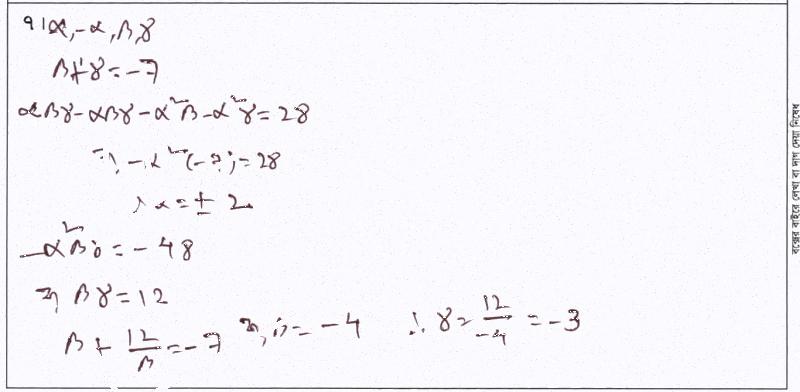 ৭। α, -α, β, γ
β+γ = -7
αβγ - αβγ - α²β - α²γ = 28
বা, -α²(-7) = 28
∴ α = ± 2
-α²βγ = - 48
বা, βγ = 12
β + 12/β = -7 বা, β = -4 ∴ γ = 12/-4 = -3
বক্সের বাইরে লেখা বা দাগ দেয়া নিষেধ